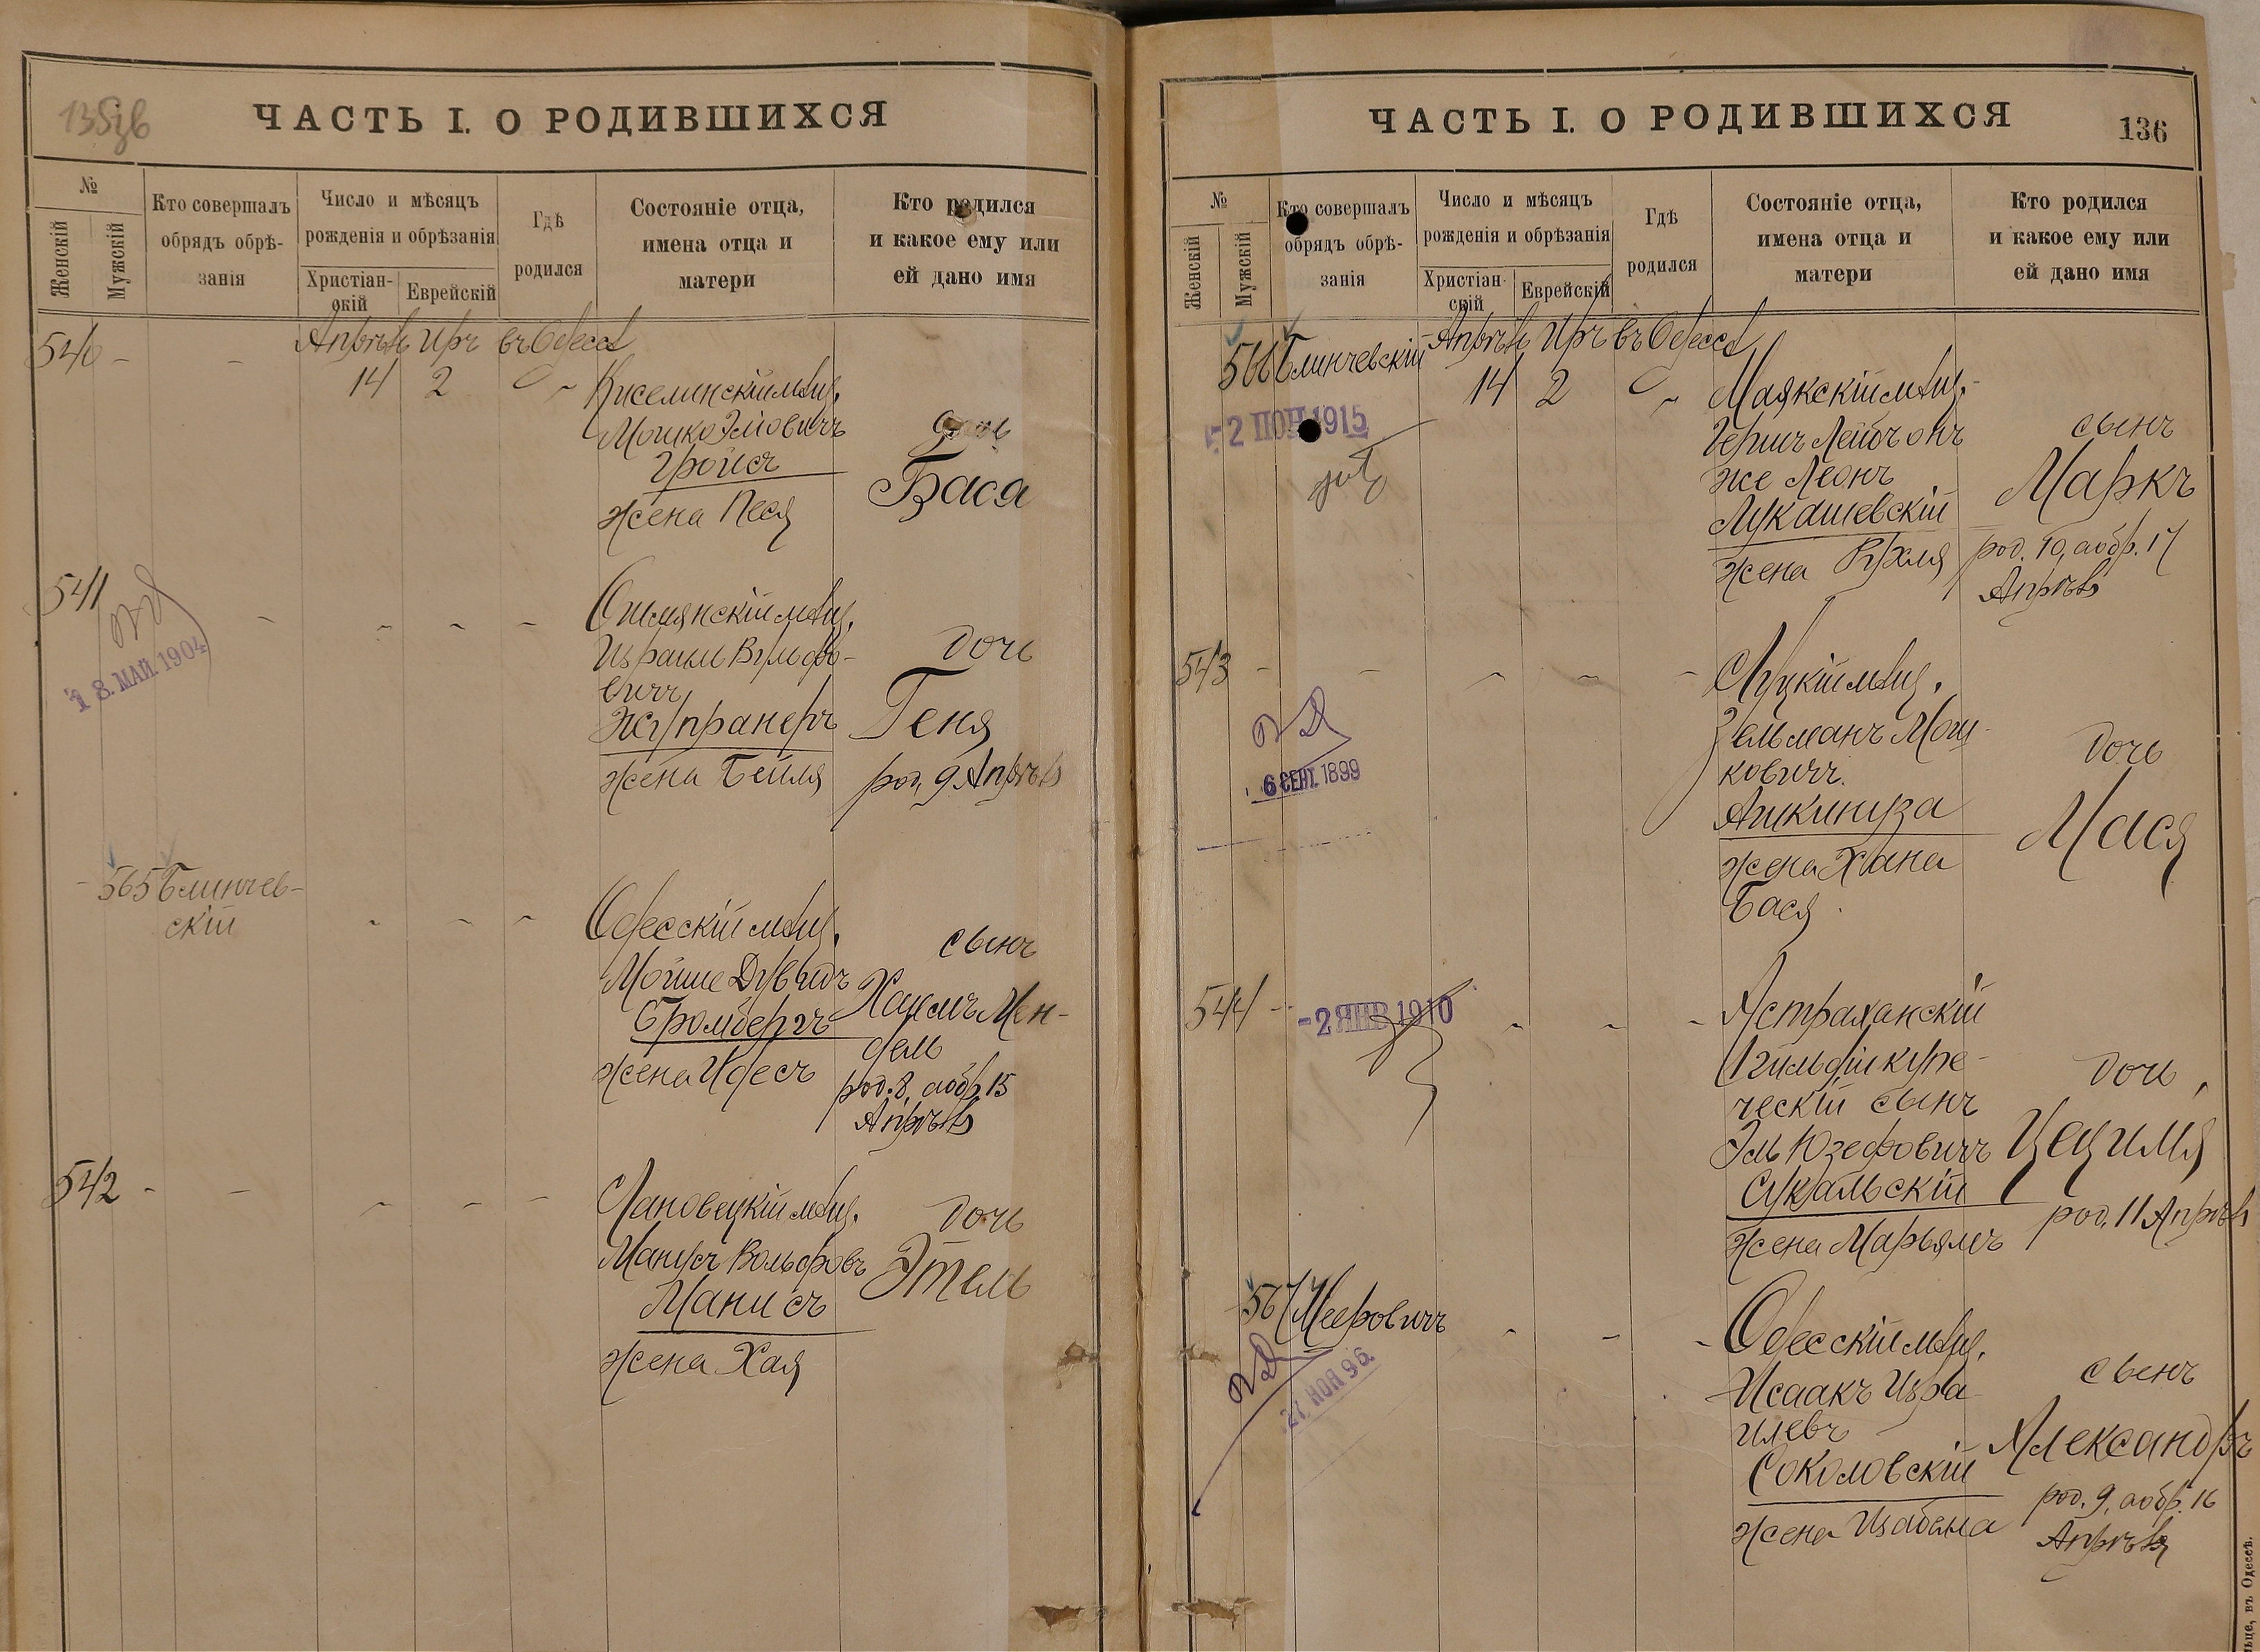 135зв
ЧАСТЬ I. О РОДИВШИХСЯ
№
Женскій
Мужскій
Кто совершалъ
обрядъ обрѣ-
занія
Число и мѣсяцъ
рожденія и обрѣзанія
Христіан-
скій
Еврейскій
Гдѣ
родился
Состояніе отца,
имена отца и
матери
Кто родился
и какое ему или
ей дано имя
540 - - Апрѣль Иръ въ Одессѣ
14 2
Киселинскій мѣщ.
Мошко
Гройсъ
жена Песя
дочь
Бася
541
18. МАЙ. 1904
Ошмянскій мѣщ.
Израиль Вульфо-
вичъ
Жупранеръ
жена Бейля
дочь
Геня
род. 9 Апрѣля
- 565 Блинчев-
скій
Одесскій мѣщ.
Мойше Дувидъ
Бромбергъ
жена Идесъ
сынъ
Хаимъ Мен-
дель
род. 8, а обр. 15
Апрѣля
542 - -
Лановецкій мѣщ.
Манусъ Вольфовъ
Манисъ
жена Хая
дочь
Этель
ЧАСТЬ I. О РОДИВШИХСЯ
136
№
Женскій
Мужскій
Кто совершалъ
обрядъ обрѣ-
занія
Число и мѣсяцъ
рожденія и обрѣзанія
Христіан-
скій
Еврейскій
Гдѣ
родился
Состояніе отца,
имена отца и
матери
Кто родился
и какое ему или
ей дано имя
566 Блинчевскій Апрѣль Иръ въ Одессѣ
14 2
1915
Маякскій мѣщ.
Гершъ Лейбъ онъ
же Леонъ
Лукашевскій
жена Рухля
сынъ
Маркъ
род. 10, а обр. 17
Апрѣля
543 - -
6 СЕНТ. 1899
Луцкій мѣщ.
Зельманъ Мош-
ковичъ
Ашкинуза
жена Хана
Бася
дочь
Мася
544 -
- 2 ЯНВ 1910
Астраханскій
1 гильдіи купе-
ческій сынъ
Эль Юзефовичъ
Сукальскій
жена Марьямъ
дочь
Цецилія
род. 11 Апрѣля
567 Мееровичъ
27. НОЯ 96.
Одесскій мѣщ.
Исаакъ Изра-
илевъ
Соколовскій
жена Изабела
сынъ
Александръ
род. 9, а обр. 16
Апрѣля
въ Одессѣ.